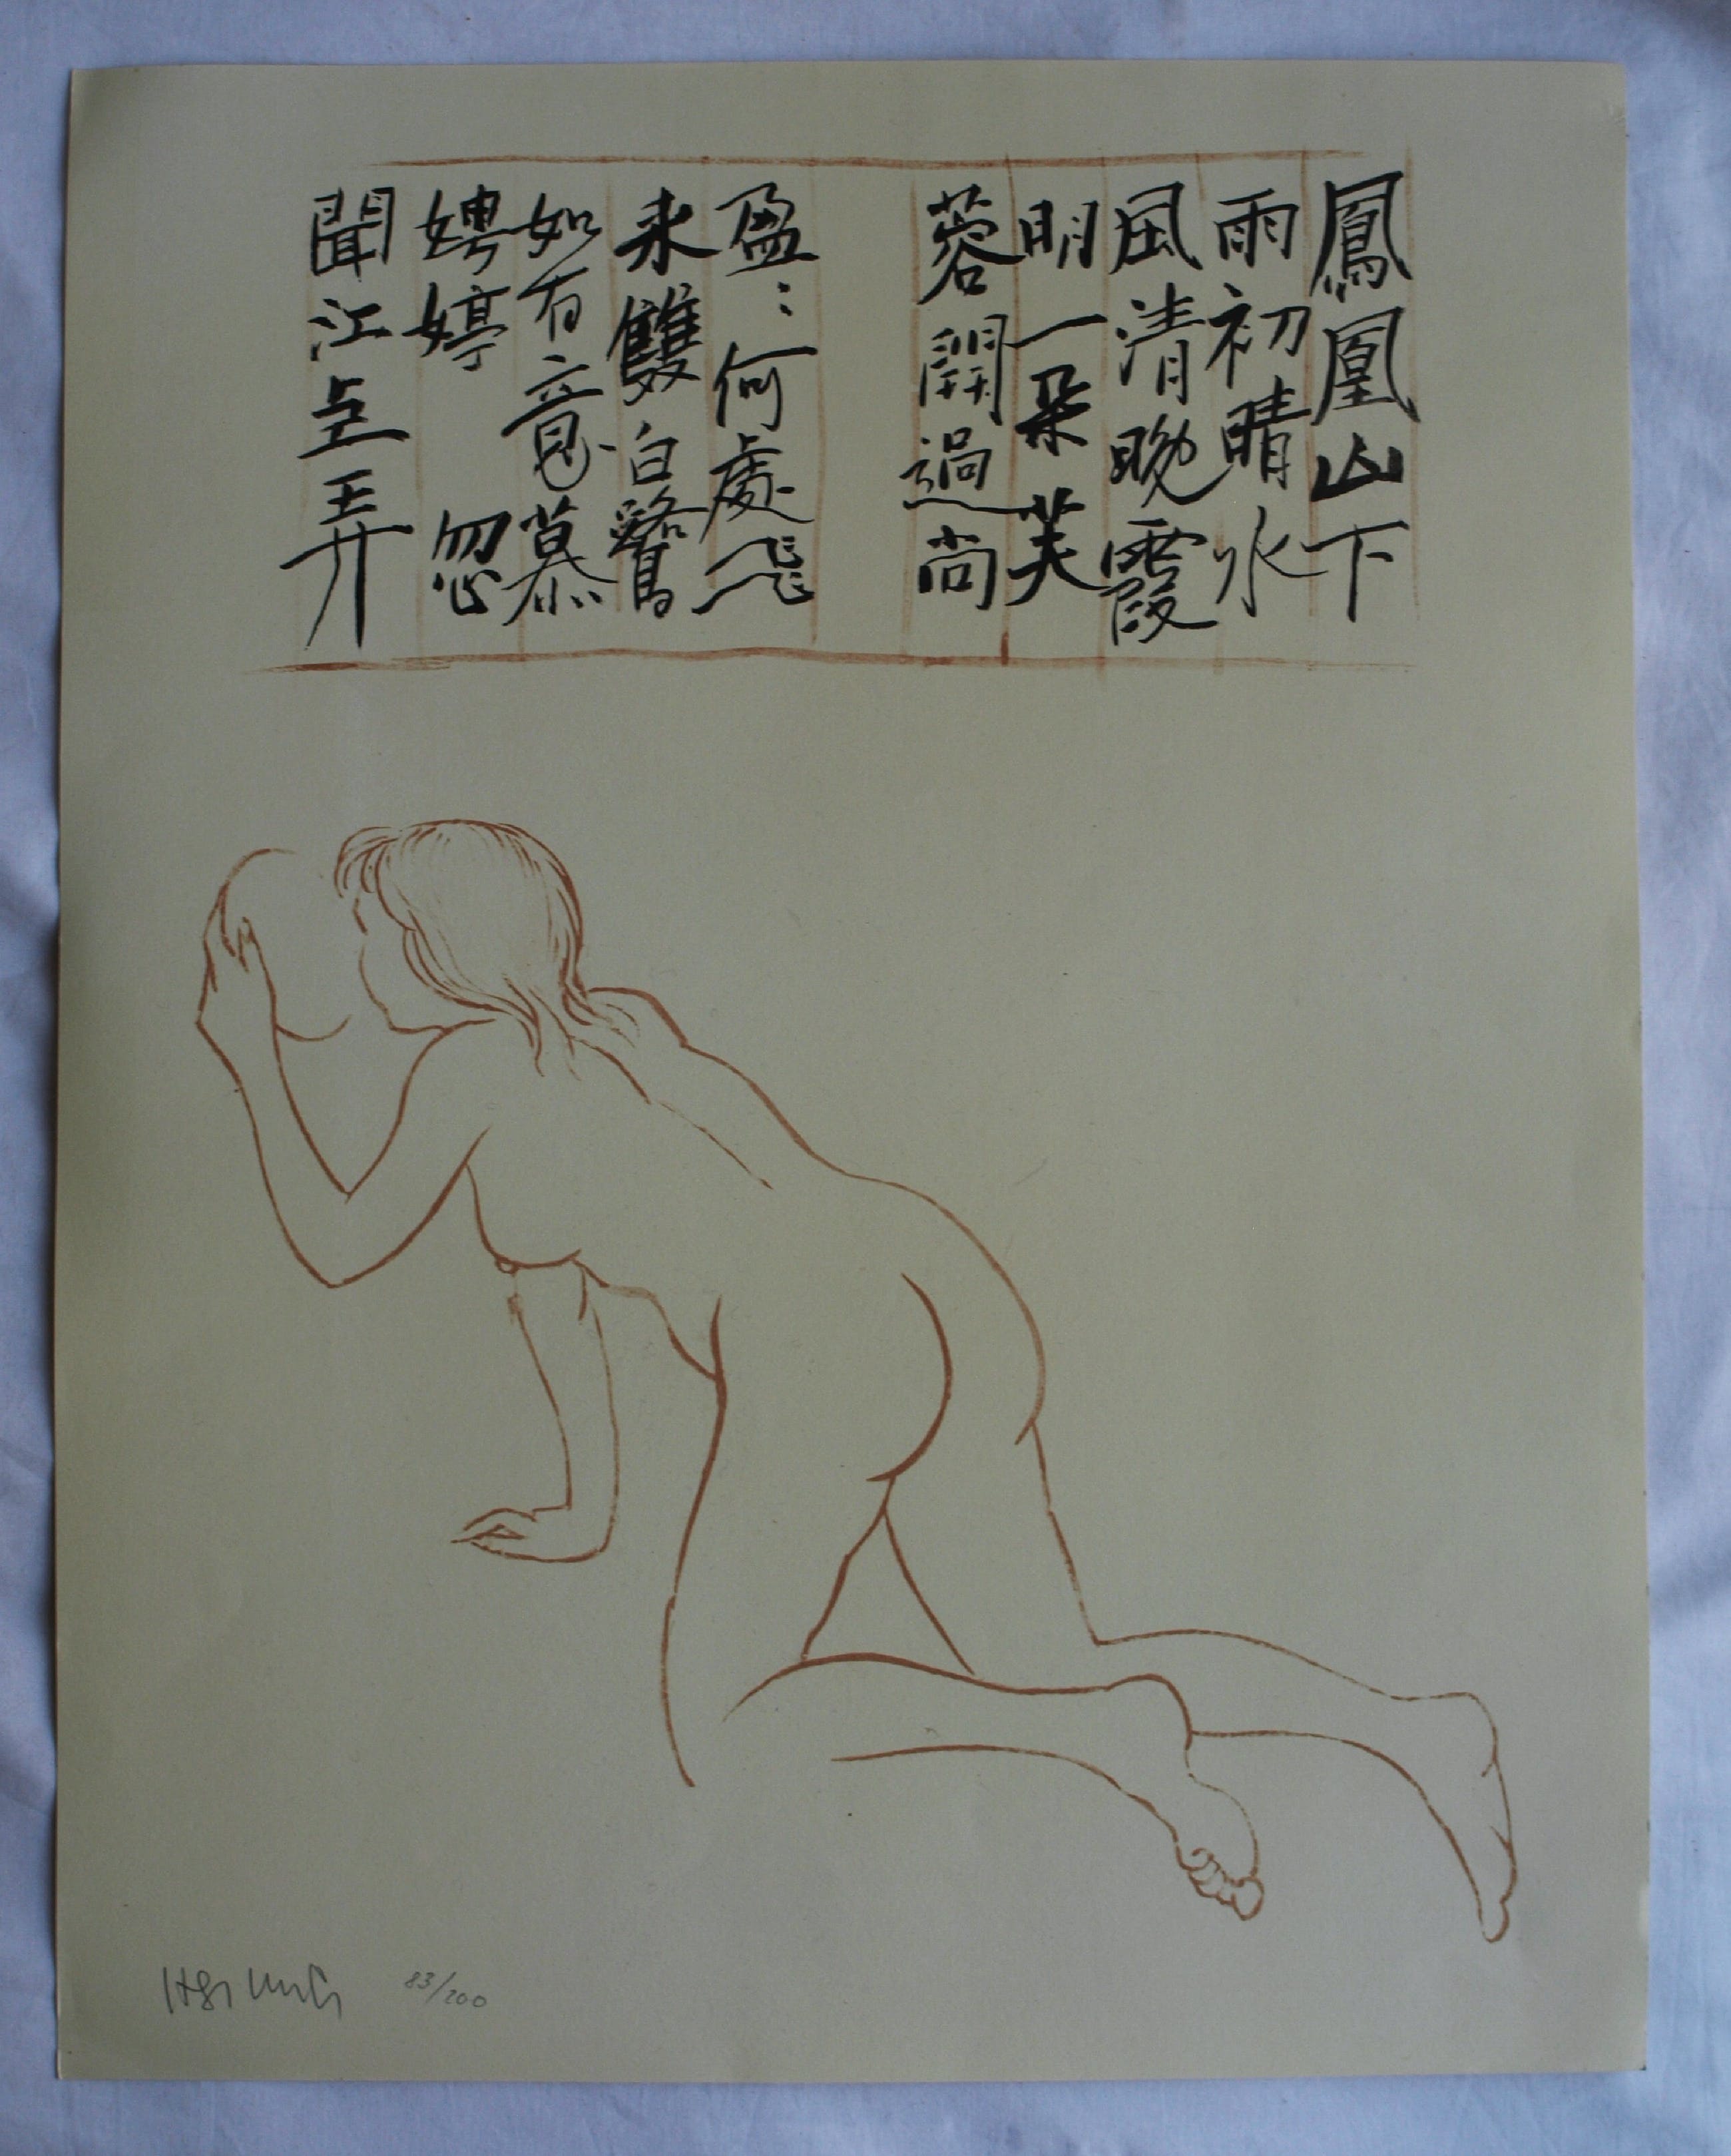 鳳凰山下
雨初晴水
風清晚霞
明一朵芙
蓉開過尚
盈:何處飛
來雙白鷺
如有意慕
娉婷 忽
聞江上弄
83/200